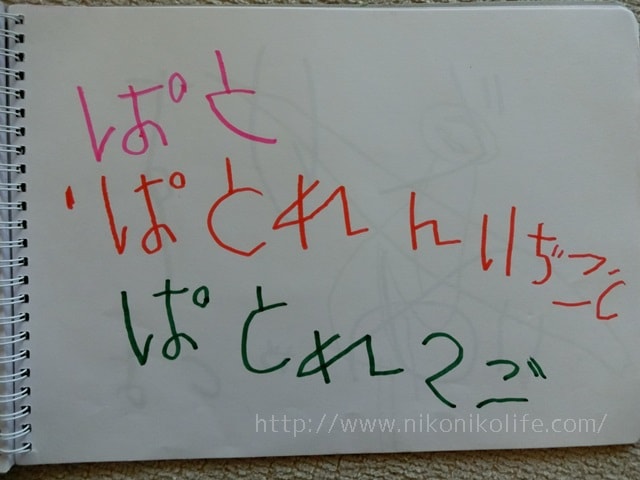 ぱと
ぱとれんいちご
ぱとれ2ご
http://www.nikonikolife.com/